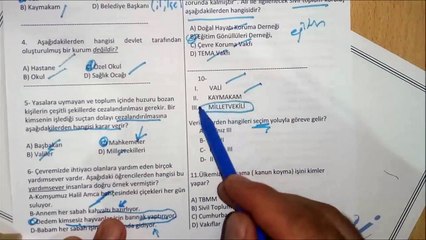 B) Kaymakam
D) Belediye Başkanı
4. Aşağıdakilerden hangisi devlet tarafından
oluşturulmuş bir kurum değildir?
A) Hastane
C) Özel Okul
B) Okul
D) Sağlık Ocağı
5- Yasalara uymayan ve toplum içinde huzuru bozan
kişilerin çeşitli şekillerde cezalandırılması gerekir. Bir
kimsenin işlediği suçtan dolayı cezalandırılmasına
aşağıdakilerden hangisi karar verir?
A) Başbakan
Mahkemeler
B) Valiler
Belediyeler
6- Çevremizde ihtiyacı olanlara yardım eden birçok
yardımsever vardır. Aşağıdaki öğrencilerden hangisi bu
yardımsever insanlara doğru örnek vermiştir?
A-Komşumuz Halil Amca bahçesindeki çiçekleri her gün
suluyor.
B-Annem her sabah kahvaltı hazırlıyor.
Dedem kimsesiz hayvanlar için barınak yaptırıyor.
D-Babam her sabah gidiyor.
aşağıdakilerden hangisidir?
A) Doğal Hayatı Koruma Derneği,
B) Eğitim Gönüllüleri Derneği,
C) Çevre Koruma Vakfı
D) TEMA Vakfı
eğitim
10-
I. VALİ
II. KAYMAKAM
III. MİLLETVEKİLİ
hangileri seçim yoluyla göreve gelir?
A)
B)
C-
D-
11.Ülkemizde (kanun koyma) işini kimler
yapar?
A) TBMM
B) Sivil
C) Cumhur
D) Vakıflar